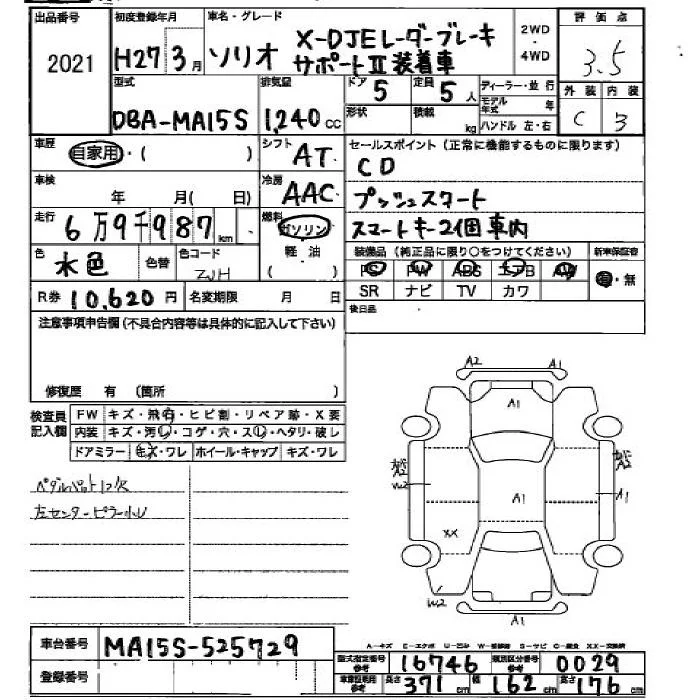 出品番号 初度登録年月 車名・グレード 2WD・4WD 評価点
2021 H27 3月 ソリオ X-DJEレーダーブレーキ 3.5
サポートⅡ装着車
型式 排気量 ドア 5 定員 5人 ディーラー・並行 外装 内装
DBA-MA15S 1,240cc 形状 積載 kg モデル年式 年 C 3
ハンドル 左・右
車歴 自家用・( ) シフト AT セールスポイント(正常に機能するものに限ります)
CD
車検 年 月( 日) 冷房 AAC プッシュスタート
走行 6万9千987km 燃料 ガソリン 軽・油 スマートキー2個車内
色 水色 色替 色コード ZJH 装備品(純正品に限り○をつけてください) 新車保証書
PS PW ABS エアB AW 有・無
SR ナビ TV カワ
R券 10,620円 名変期限 月 日 後日品
注意事項申告欄(不具合内容等は具体的に記入して下さい)
修復歴 有(箇所 )
検査員記入欄 FW キズ・飛石・ヒビ割・リペア跡・X要
内装 キズ・汚レ・コゲ・穴・スレ・ヘタリ・破レ
ドアミラー キズ・ワレ ホイール・キャップ キズ・ワレ
左センターピラー小U
A2 A1
A1
W2 A1 A1
XX
W2
A1
車台番号 MA15S-525729
A-キズ E-エクボ U-凹み W-補修跡 S-サビ C-腐食 XX-交換済
登録番号 型式指定番号 参考 16746 類別区分番号 参考 0029
車庫証明用 参考 長さ 371cm 幅 162cm 高さ 176cm